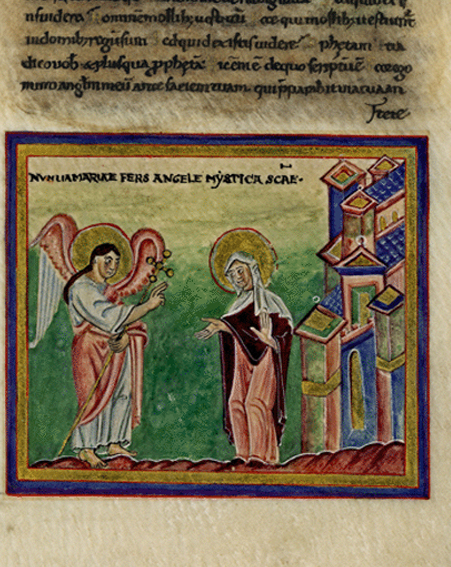 uidere hominem mollib; uestitū ecce qui mollib; uestiunt
in domib; regū sunt sed quid existis uidere ꝓphetam eti
dico uob & plus quā ꝓphetā hic ē eni de quo scriptū ē ecce ego
mitto anglm meū ante faciem tuam qui p̄parabit uiā tuā an
NVNTIA MARIAE FERS ANGELE MYSTICA SCAE·